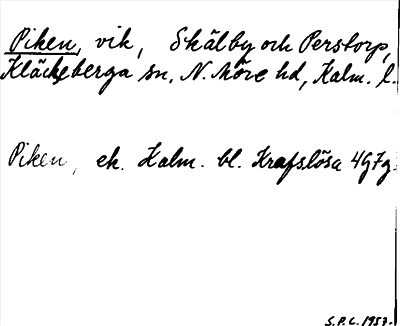 Piken, vik, Skälby och Perstorp,
Kläckeberga sn, N. Möre hd, Kalm. l.
Piken, ek. Kalm. bl. Krafslösa 4G7g.
S.P.C. 1957.